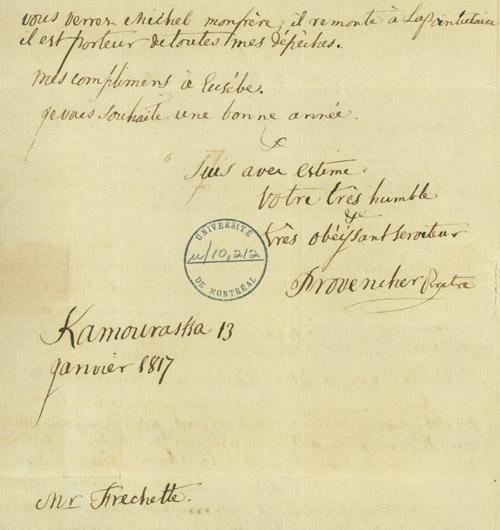 vous verrez Michel monfrère, il remonte à
il est porteur de toutes mes dépêches.
Mes complimens à Eusébe.
je vous souhaite une bonne année.
&
Suis avec estime
Votre très humble
&
très obéissant serviteur
Provencher Prêtre
UNIVERSITÉ
u/10,212
DE MONTRÉAL
Kamouraska 13
janvier 1817
Mr Frechette.